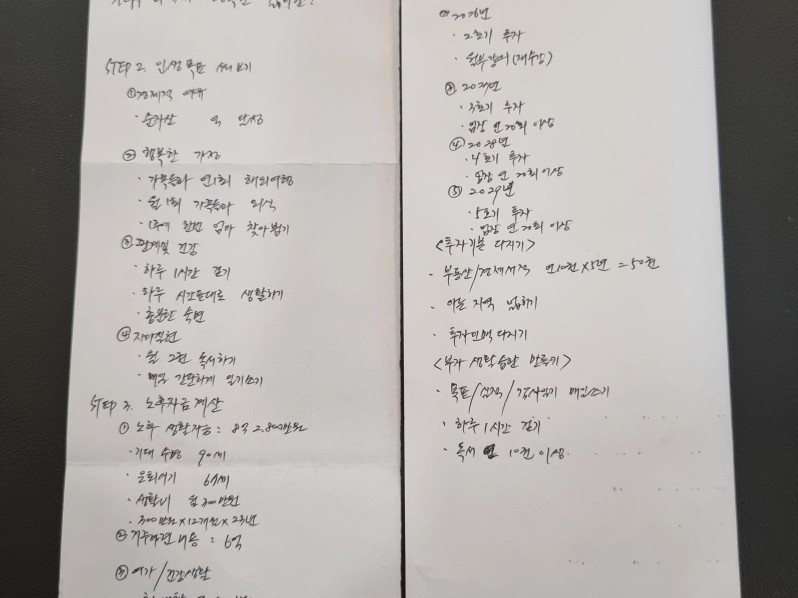 STEP 2. 인생목표 써보기
① 경제적 여유
· 순자산 억 달성
② 행복한 가정
· 가족들과 연1회 해외여행
· 월 1회 가족들과 외식
· 1주에 한번 엄마 찾아뵙기
③ 관계및 건강
· 하루 1시간 걷기
· 하루 시간표대로 생활하기
· 충분한 숙면
④ 자아실현
· 월 2권 독서하기
· 매일 간단하게 일기쓰기
STEP 3. 노후자금계산
① 노후 생활자금 : 8억 2,800만원
· 기대 수명 90세
· 은퇴시기 67세
· 생활비 월 300만원
· 300만원 × 12개월 × 23년
② 거주마련비용 : 6억
③ 여가/건강생활
① 2026년
· 2호기 투자
· (재수강)
③ 2027년
· 3호기 투자
· 임장 연 20회 이상
④ 2028년
· 4호기 투자
· 임장 연 20회 이상
⑤ 2029년
· 5호기 투자
· 임장 연 20회 이상
<투자기본 다지기>
· 부동산/경제서적 연10권 × 5년 = 50권
· 아는 지역 넓히기
· 투자인맥 다지기
<부자 생활습관 만들기>
· 목표/실적/감사일기 매일쓰기
· 하루 1시간 걷기
· 독서 연 10권 이상